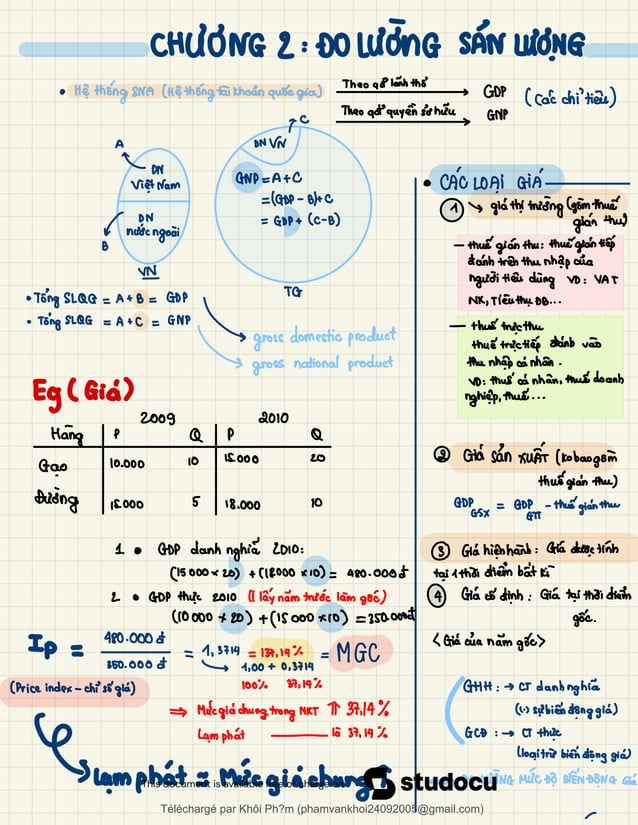 CHƯƠNG 2: ĐO LƯỜNG SẢN LƯỢNG
• Hệ thống SNA (Hệ thống tài khoản quốc gia)
Theo qđ lãnh thổ
GDP
Theo qđ quyền sở hữu
GNP
(Các chỉ tiêu)
A
DN
Việt Nam
DN
nước ngoài
B
VN
C
DN VN
GNP = A + C
= (GDP - B) + C
= GDP + (C - B)
TG
• Tổng SLQG = A + B = GDP
• Tổng SLQG = A + C = GNP
gross domestic product
gross national product
Eg (Giá)
2009 2010
Hàng P Q P Q
Gạo 10.000 10 15.000 20
Đường 15.000 5 18.000 10
1 • GDP danh nghĩa 2010:
(15 000 × 20) + (18000 × 10) = 480.000 đ
2 • GDP thực 2010 (lấy năm trước làm gốc)
(10 000 × 20) + (15 000 × 10) = 350.000đ
Ip = 480.000 đ / 350.000 đ = 1,3714 = 137,14% = MGC
1,00 + 0,3714
100% 37,14%
(Price index - chỉ số giá)
⇒ Mức giá chung trong NKT ⇑ 37,14%
Lạm phát là 37,14%
Lạm phát = Mức giá chung ⇑
• CÁC LOẠI GIÁ
① giá thị trường (gồm thuế
gián thu)
— thuế gián thu: thuế gián tiếp
đánh trên thu nhập của
người tiêu dùng VD: VAT
NK, Tiêu thụ ĐB...
— thuế trực thu
thuế trực tiếp đánh vào
thu nhập cá nhân.
VD: thuế cá nhân, thuế doanh
nghiệp, thuế...
② Giá sản xuất (ko bao gồm
thuế gián thu)
GDP GSX = GDP GTT - thuế gián thu
③ Giá hiện hành: Giá được tính
tại 1 thời điểm bất kì
④ Giá cố định: Giá tại thời điểm
gốc.
< Giá của năm gốc >
GHH: → CT danh nghĩa
(có sự biến động giá)
GCĐ: → CT thực
(loại trừ biến động giá)
ĐO LƯỜNG MỨC ĐỘ BIẾN ĐỘNG GIÁ
This document is available free of charge on
studocu
Téléchargé par Khôi Ph?m (phamvankhoi24092005@gmail.com)